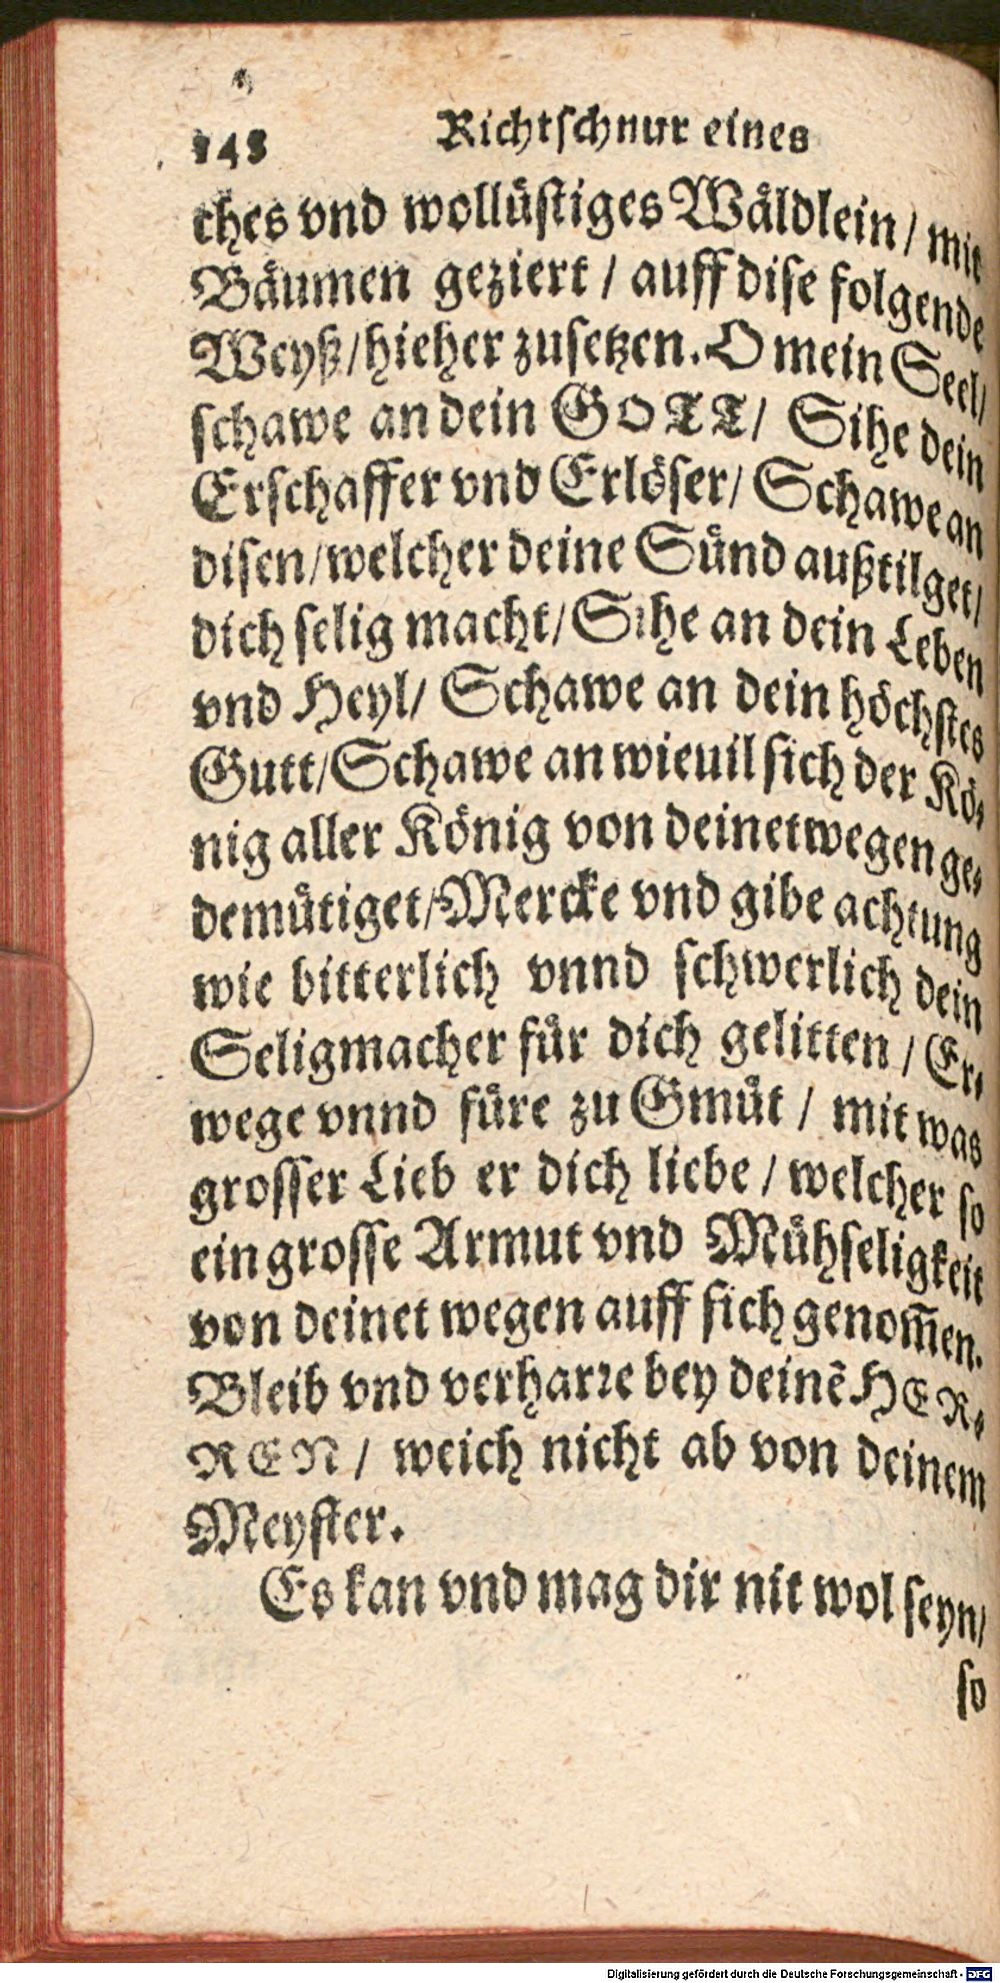 148 Richtschnur eines
ches vnd wollüstiges Wäldlein / mit
Bäumen geziert / auff dise folgende
Weyß / hieher zusetzen. O mein Seel /
schawe an dein GOTT / Sihe dein
Erschaffer vnd Erlöser / Schawe an
disen / welcher deine Sünd außtilget /
dich selig macht / Sihe an dein Leben
vnd Heyl / Schawe an dein höchstes
Gutt / Schawe an wieuil sich der Kö-
nig aller König von deinetwegen ge-
demütiget / Mercke vnd gibe achtung
wie bitterlich vnnd schwerlich dein
Seligmacher für dich gelitten / Er-
wege vnnd füre zu Gmüt / mit was
grosser Lieb er dich liebe / welcher so
ein grosse Armut vnd Mühseligkeit
von deinet wegen auff sich genom̃en.
Bleib vnd verharre bey deinẽ HER-
REN / weich nicht ab von deinem
Meyster.
Es kan vnd mag dir nit wol seyn /
so
Digitalisierung gefördert durch die Deutsche Forschungsgemeinschaft - DFG